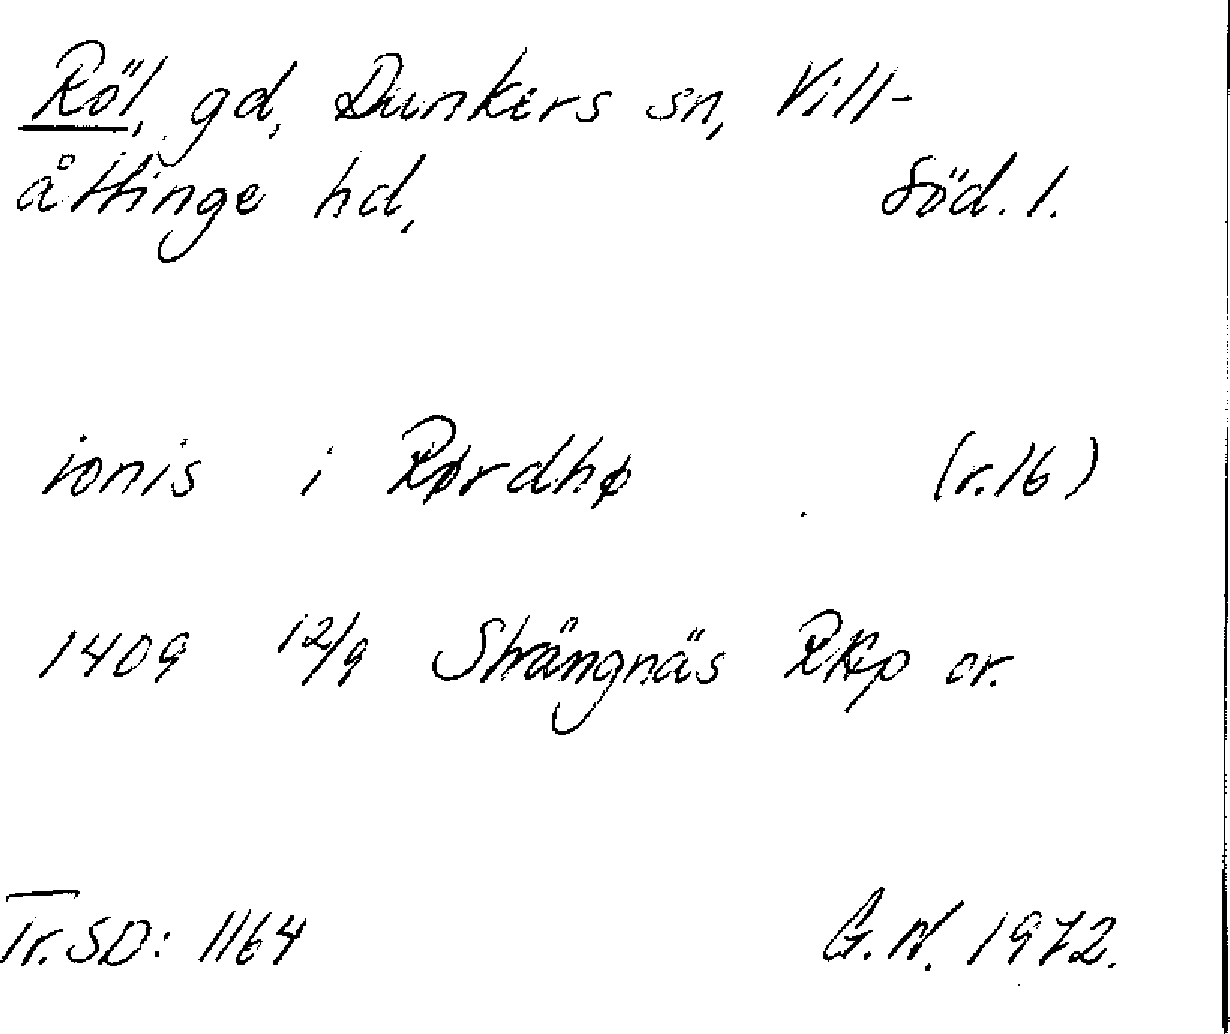 Röl, gd, Dunkers sn, Vill-
åttinge hd, Söd. l.
ionis i Rørdhø (r.16)
1409 12/9 Strängnäs RKp or.
Tr. SD: 1164 G.N. 1972.